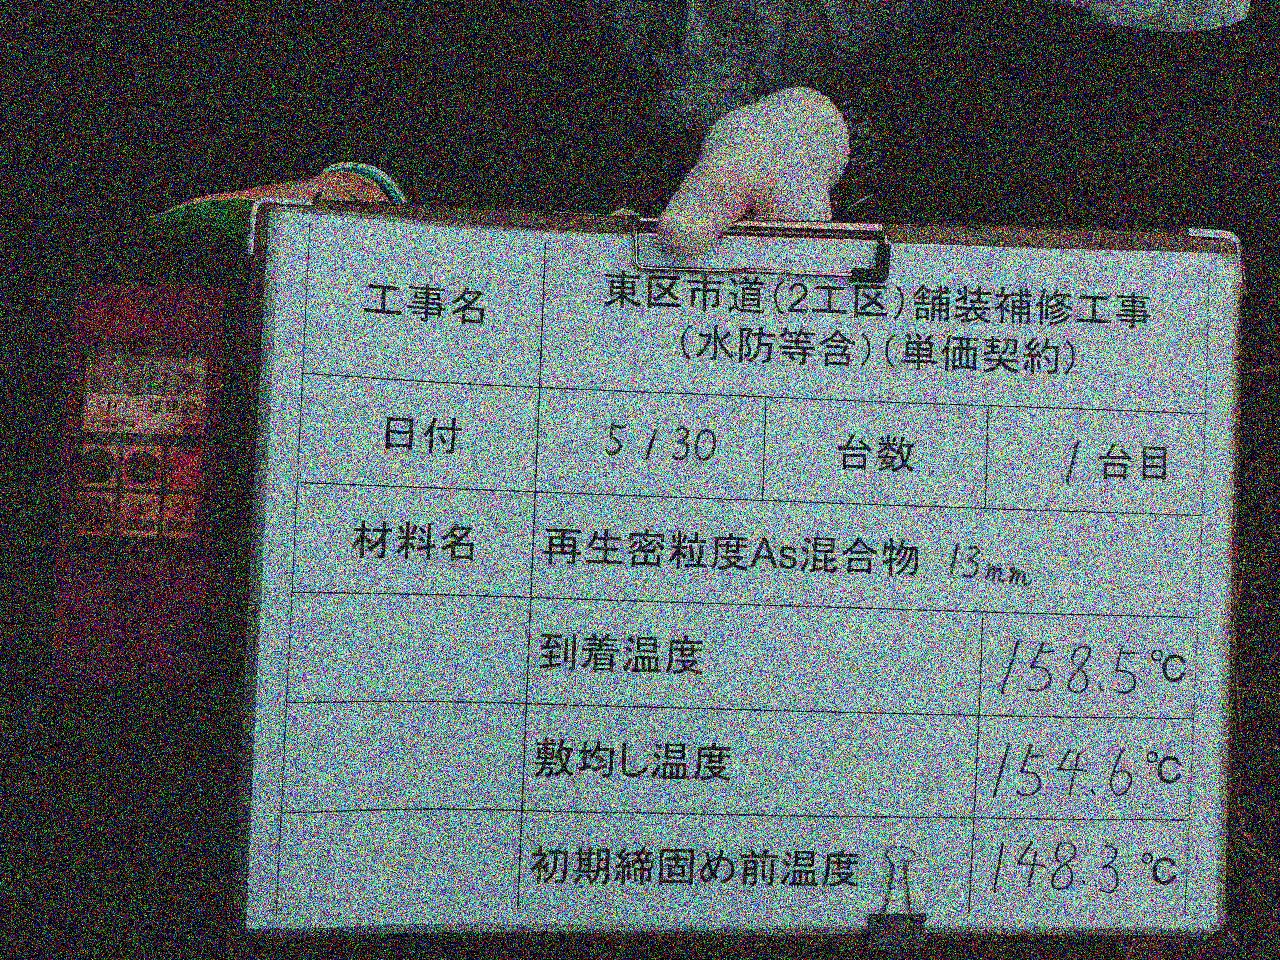 工事名
東区市道(2工区)舗装補修工事
(水防等含)(単価契約)
日付 5/30 台数 1台目
材料名 再生密粒度As混合物 13mm
到着温度 158.5℃
敷均し温度 154.6℃
初期締固め前温度 148.3℃